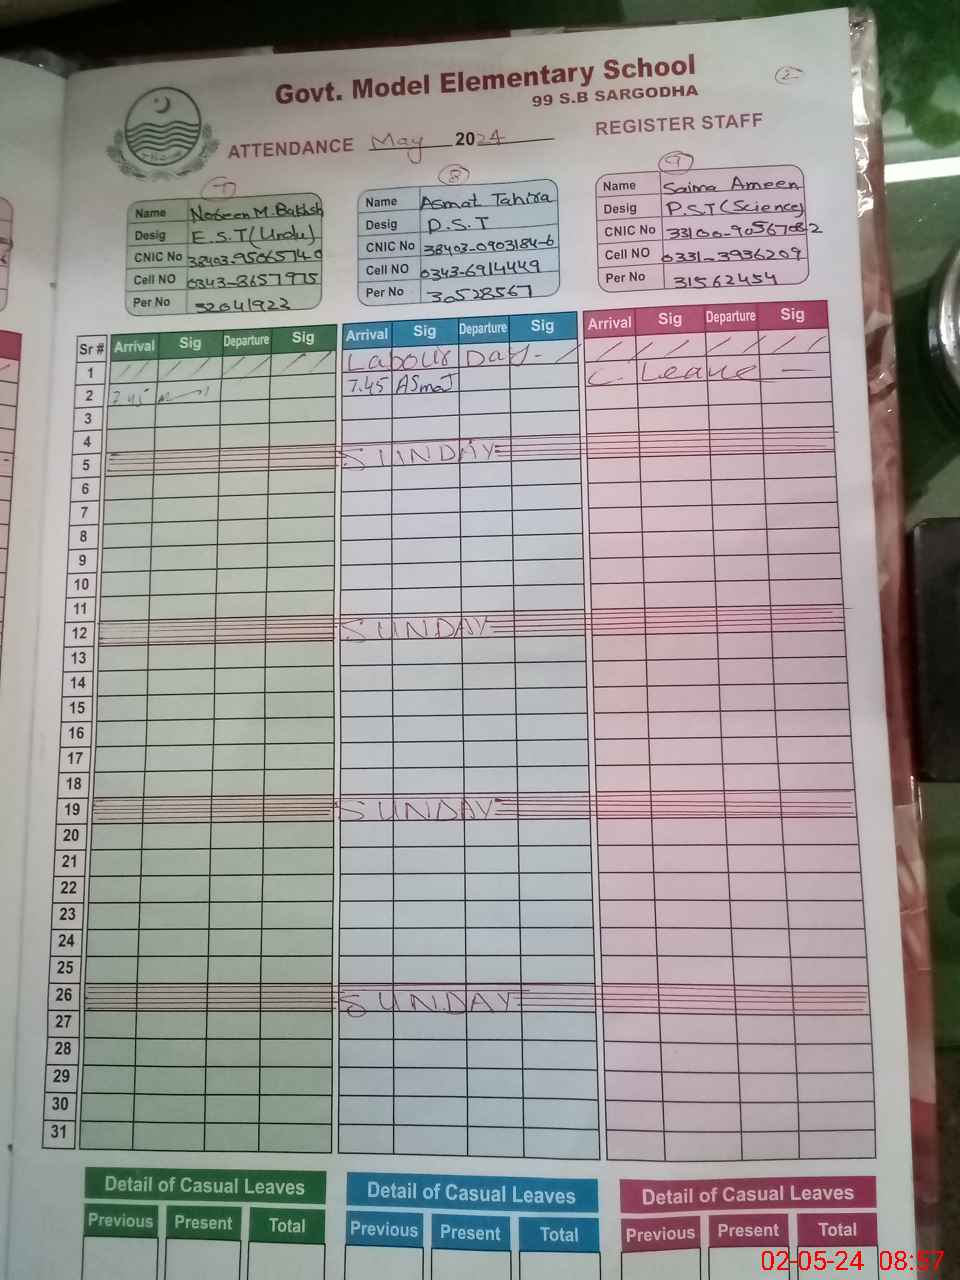 Govt. Model Elementary School
99 S.B SARGODHA
2
ATTENDANCE May 2024 REGISTER STAFF
7
Name Noreen M.Bakhsh
Desig E.S.T(Urdu)
CNIC No 38403-9506574-0
Cell NO 0343-8657975
Per No 32041922
8
Name Asmat Tahira
Desig D.S.T
CNIC No 38403-0903184-6
Cell NO 0343-6914449
Per No 30528567
9
Name Saima Ameen
Desig P.S.T(Science)
CNIC No 33100-9056708-2
Cell NO 0331-3936209
Per No 31562454
Sr # Arrival Sig Departure Sig Arrival Sig Departure Sig Arrival Sig Departure Sig
1 Labour Day
2 7.45 7.45 Asmat C. Leave
3
4
5 SUNDAY
6
7
8
9
10
11
12 SUNDAY
13
14
15
16
17
18
19 SUNDAY
20
21
22
23
24
25
26 SUNDAY
27
28
29
30
31
Detail of Casual Leaves Detail of Casual Leaves Detail of Casual Leaves
Previous Present Total Previous Present Total Previous Present Total
02-05-24 08:57